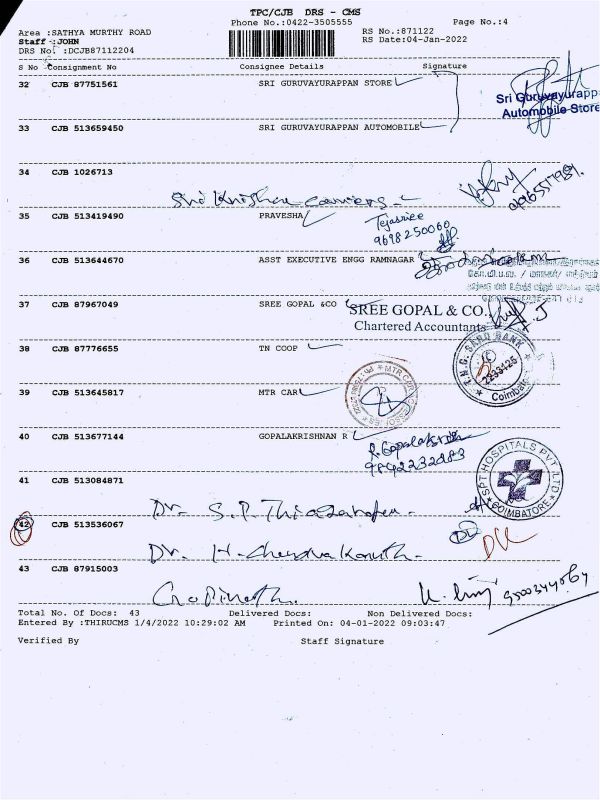 TPC/CJB DRS - CMS
Phone No.:0422-3505555 Page No.:4
Area :SATHYA MURTHY ROAD RS No.:871122
Staff :JOHN RS Date:04-Jan-2022
DRS No. :DCJB87112204
S No Consignment No Consignee Details Signature
32 CJB 87751561 SRI GURUVAYURAPPAN STORE
Sri Guruvayurapp
Automobile Store
33 CJB 513659450 SRI GURUVAYURAPPAN AUTOMOBILE
34 CJB 1026713
Sri Krishna
35 CJB 513419490 PRAVESHA
9698250060
36 CJB 513644670 ASST EXECUTIVE ENGG RAMNAGAR
37 CJB 87967049 SREE GOPAL &CO
SREE GOPAL & CO.
Chartered Accountants
38 CJB 87776655 TN COOP
39 CJB 513645817 MTR CAR
40 CJB 513677144 GOPALAKRISHNAN R
R. Gopalakrishnan
9842232483
SPT HOSPITALS PVT LTD
COIMBATORE
41 CJB 513084871
Dr. S.P. Thiagarajan
42 CJB 513536067
Dr. H. Chandrakanth
43 CJB 87915003
Gopinath.
Total No. of Docs: 43 Delivered Docs: Non Delivered Docs:
Entered By :THIRUCMS 1/4/2022 10:29:02 AM Printed On: 04-01-2022 09:03:47
Verified By Staff Signature